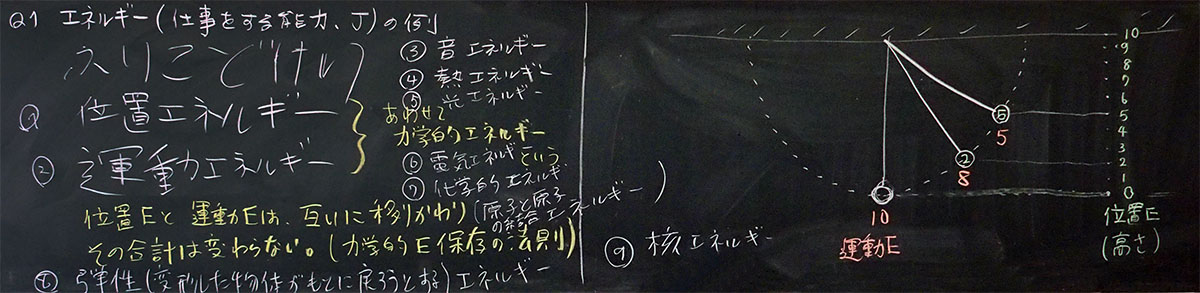 Q1 エネルギー(仕事をする能力、J)の例
ふりこどけい
① 位置エネルギー
② 運動エネルギー
あわせて
力学的エネルギー
という
③ 音エネルギー
④ 熱エネルギー
⑤ 光エネルギー
⑥ 電気エネルギー
⑦ 化学的エネルギー
(原子と原子の結合エネルギー)
位置Eと運動Eは、互いに移りかわり
その合計は変わらない。(力学的E保存の法則)
⑧ 弾性(変形した物体がもとに戻ろうとする)エネルギー
⑨ 核エネルギー
10
9
8
7
6
5
4
3
2
1
0
⑤
5
②
8
10
運動E
位置E
(高さ)